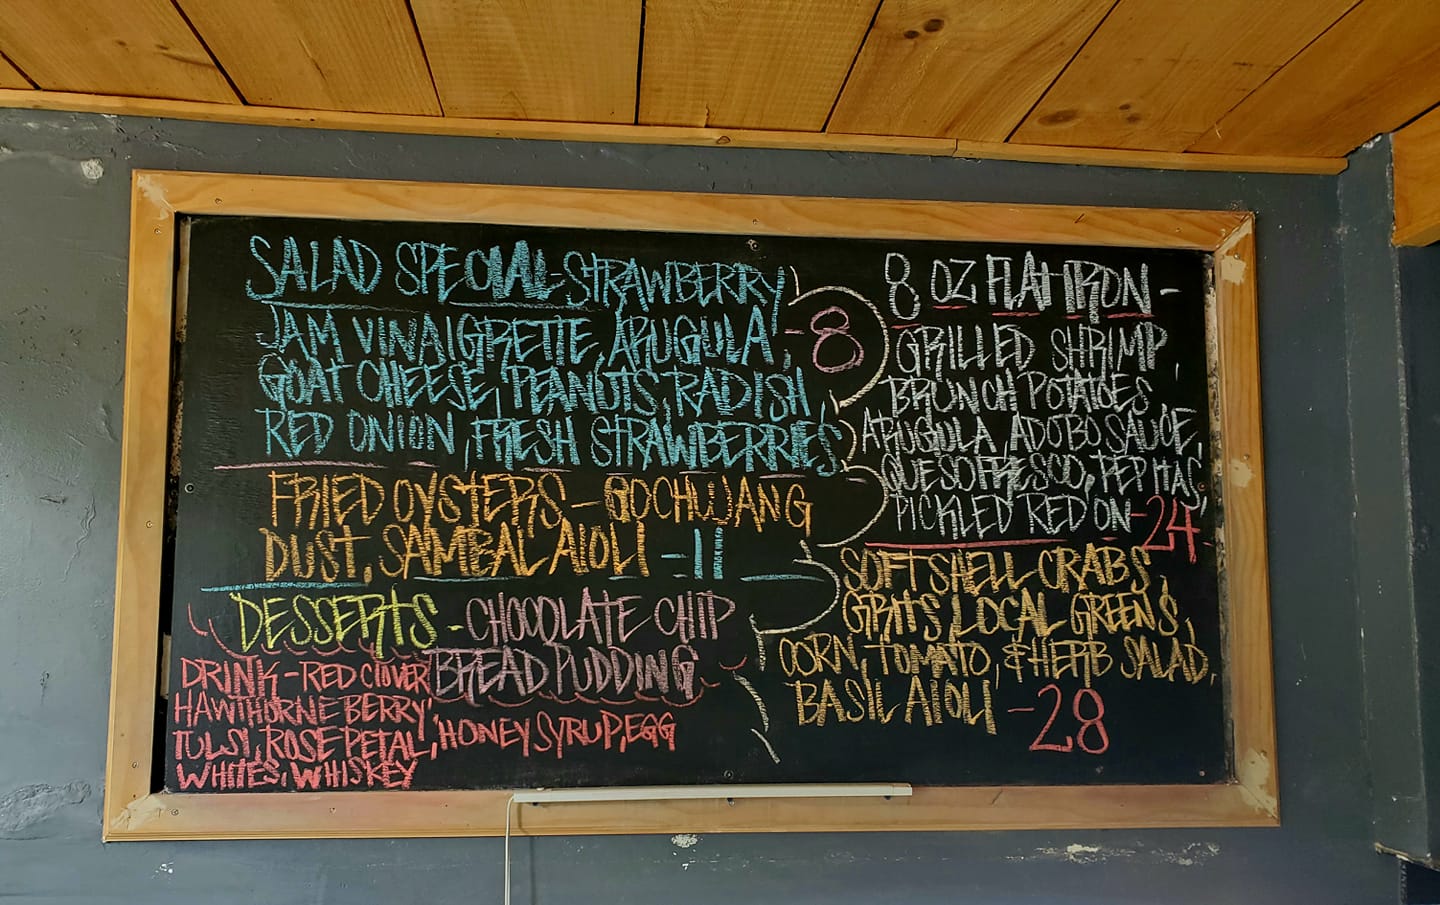 SALAD SPECIAL-STRAWBERRY
JAM VINAIGRETTE, ARUGULA, -8
GOAT CHEESE, PEANUTS, RADISH,
RED ONION, FRESH STRAWBERRIES
FRIED OYSTERS - GOCHUJANG
DUST, SAMBAL AIOLI -11
DESSERTS - CHOCOLATE CHIP
BREAD PUDDING
DRINK - RED CLOVER
HAWTHORNE BERRY,
TULSI, ROSE PETAL, HONEY SYRUP, EGG
WHITES, WHISKEY
8 OZ FLAT IRON -
GRILLED SHRIMP,
BRUNCH POTATOES,
ARUGULA, ADOBO SAUCE,
QUESO FRESCO, PEPITAS,
PICKLED RED ON -24
SOFT SHELL CRABS,
GRITS, LOCAL GREENS,
CORN, TOMATO, & HERB SALAD,
BASIL AIOLI -28